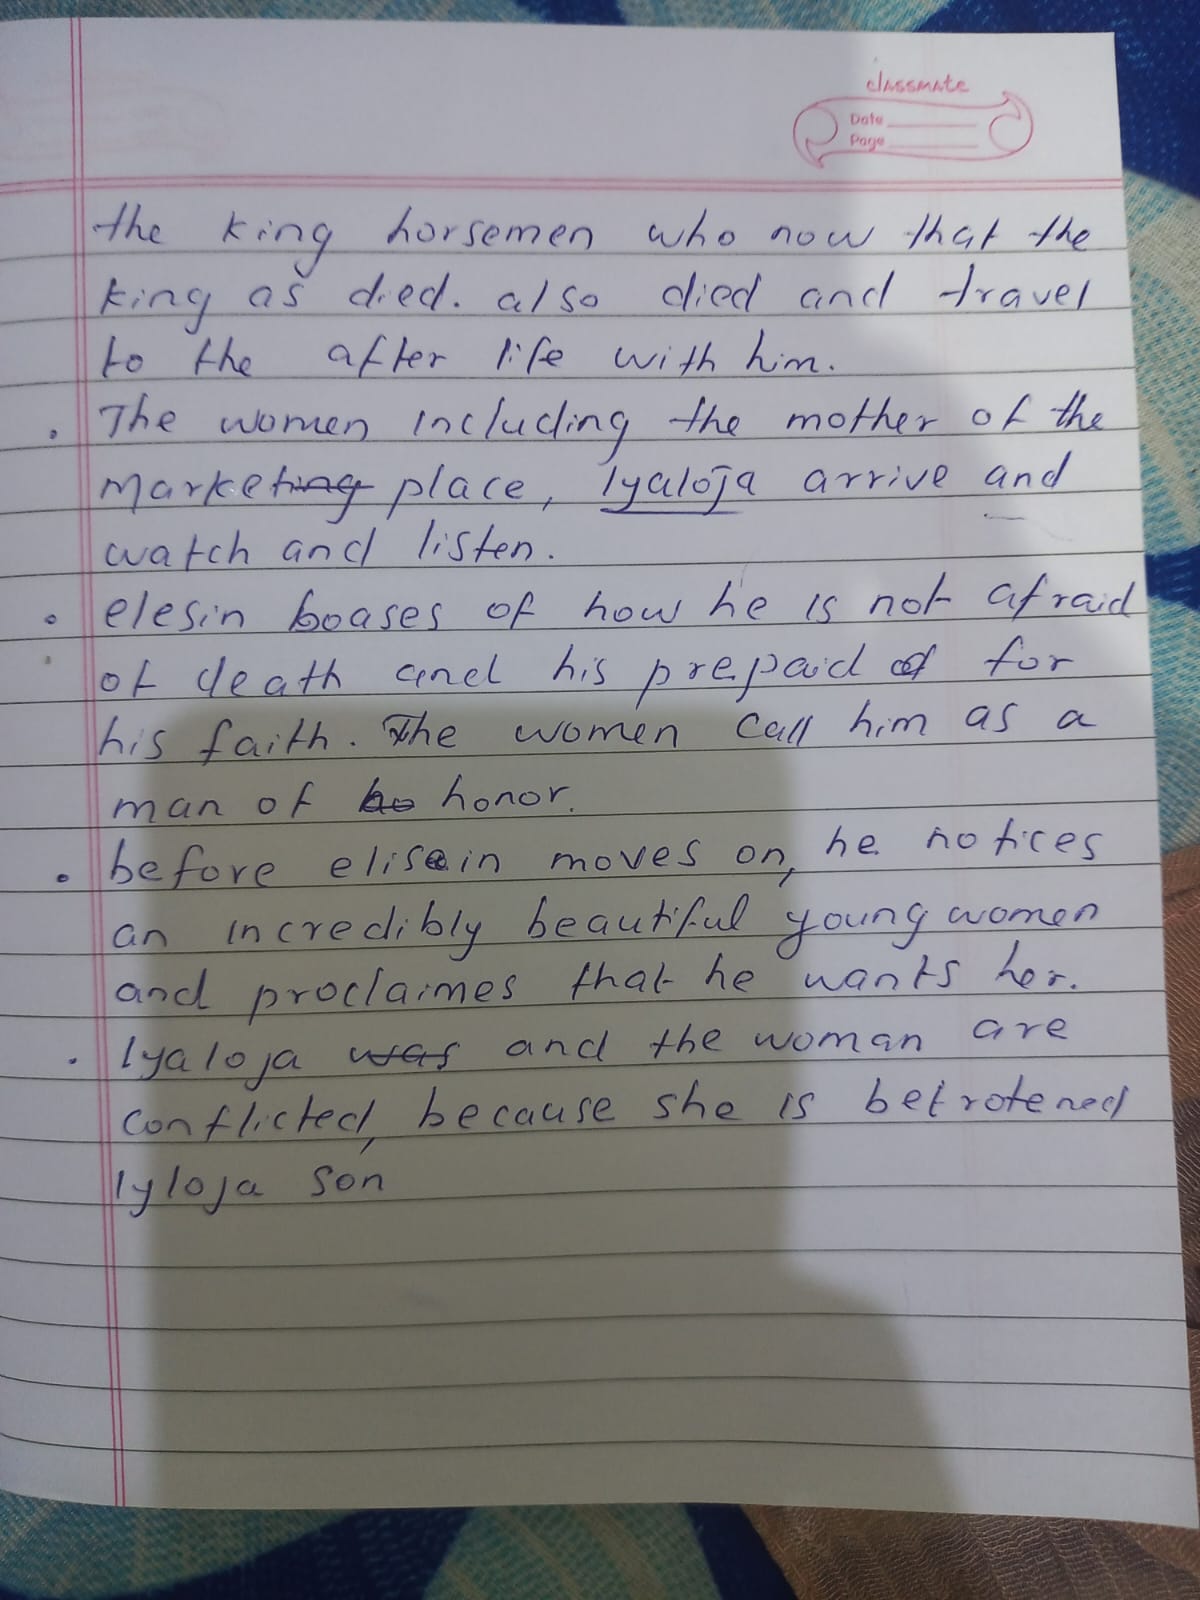 classmate
Date
Page
the king horsemen who now that the
king as died. also died and travel
to the after life with him.
. The women including the mother of the
marketing place, Iyaloja arrive and
watch and listen.
. elesin boases of how he is not afraid
of death and his prepaid of for
his faith. The women call him as a
man of ho honor.
. before elisein moves on, he notices
an incredibly beautiful young women
and proclaimes that he wants her.
. Iyaloja was and the woman are
conflicted, because she is betrotened
Iyloja son